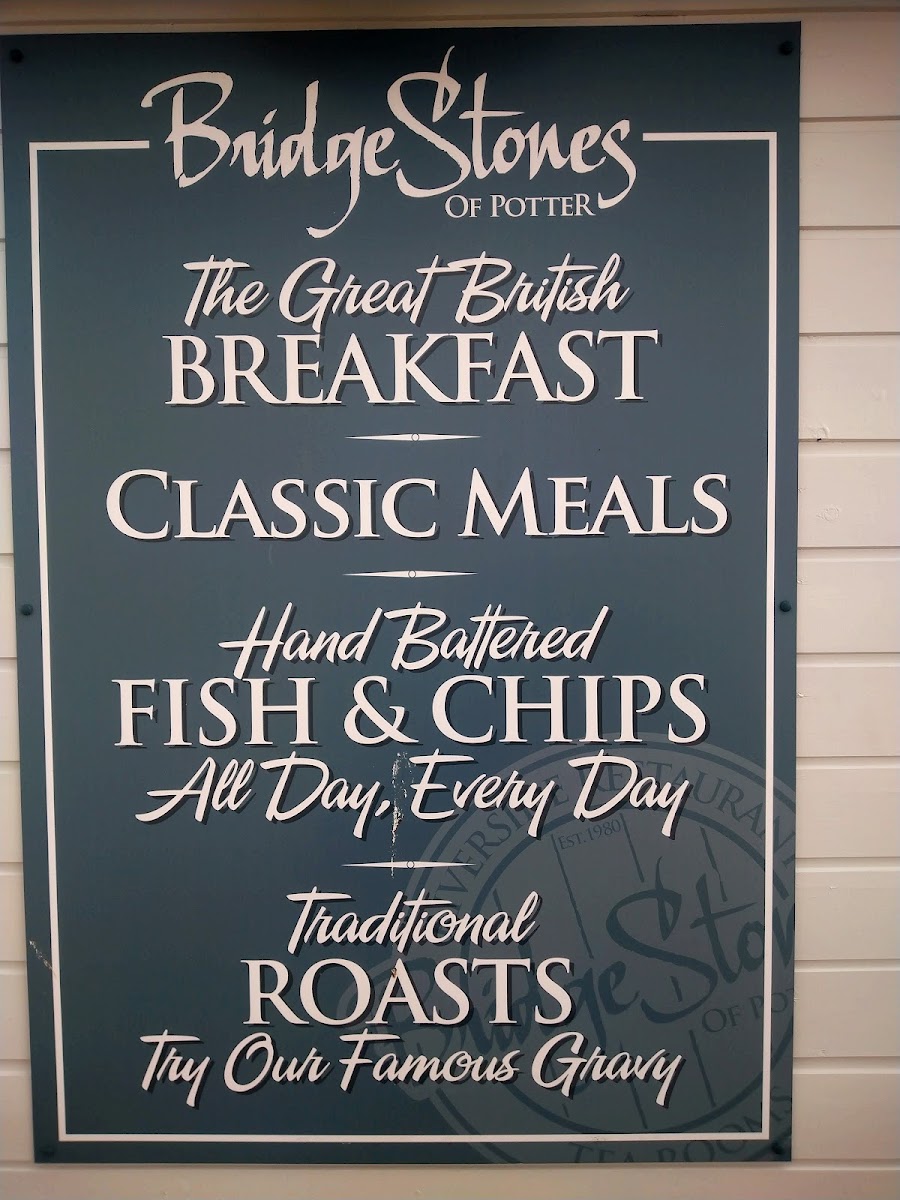 BridgeStones
OF POTTER
The Great British
BREAKFAST
CLASSIC MEALS
Hand Battered
FISH & CHIPS
All Day, Every Day
Traditional
ROASTS
Try Our Famous Gravy
RIVERSIDE RESTAURANT
EST. 1980
BridgeStones
OF POTTER
TEA ROOMS